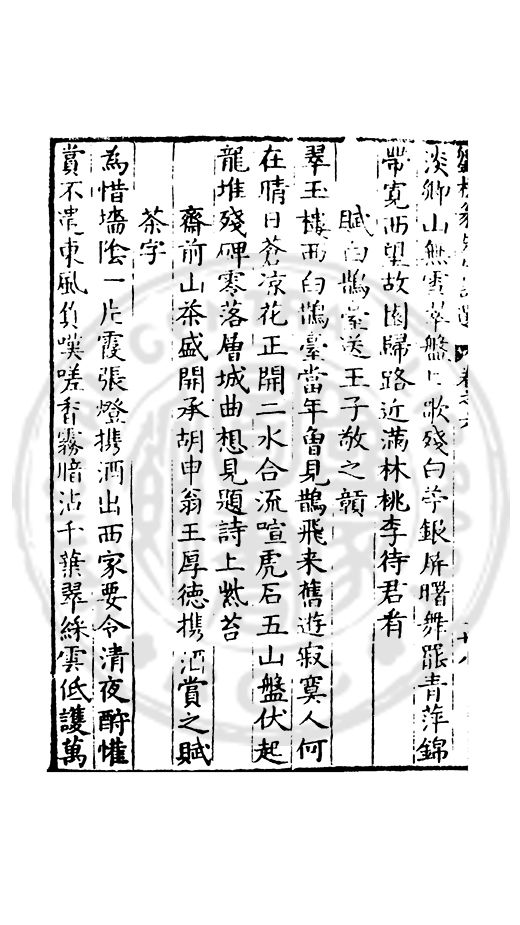 卷之六
淡鄉山無雪翠盤〻歌殘白苧銀屏曙舞罷青萍錦
帶寛西望故園歸路近滿林桃李待君看
賦白鵲臺送王子敬之贛
翠玉樓西白鵲臺當年曾見鵲飛来舊遊寂寞人何
在晴日蒼涼花正開二水合流喧虎石五山盤伏起
龍堆殘碑零落層城曲想見題詩上紫苔
齋前山茶盛開承胡申翁王厚德携酒賞之賦
茶字
為惜墻陰一片霞張燈携酒出西家要令清夜酧懽
賞不遣東風負嘆嗟香霧暗沾千葉翠綵雲低護萬